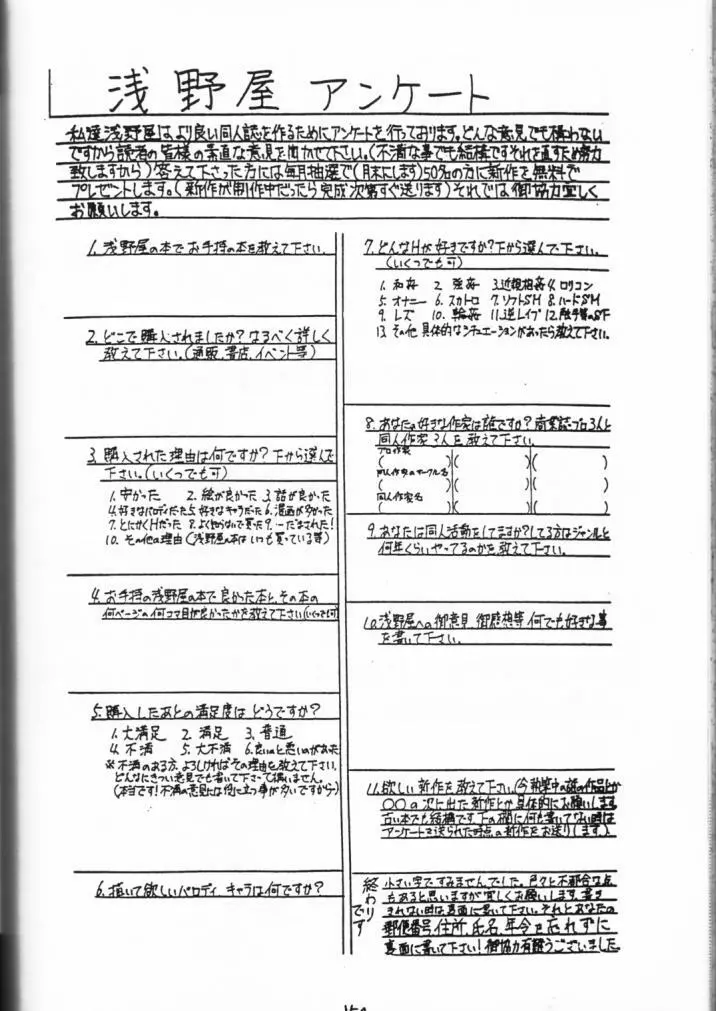 浅野屋 アンケート
私達浅野屋はより良い同人誌を作るためにアンケートを行っております。どんな意見でも構わない
ですから読者の皆様の素直な意見を聞かせて下さい。(不満な事でも結構ですそれを直すため努力
致しますから)答えて下さった方には毎月抽選で(月末にします)50名の方に新作を無料で
プレゼントします。(新作が制作中だったら完成次第すぐ送ります)それでは御協力宜しく
お願いします。
1. 浅野屋の本でお手持の本を教えて下さい。
2. どこで購入されましたか?なるべく詳しく
教えて下さい。(通販、書店、イベント等)
3. 購入された理由は何ですか?下から選んで
下さい。(いくつでも可)
1. 安かった 2. 絵が良かった 3. 話が良かった
4. 好きなパロディだった 5. 好きなキャラだった 6. 漫画が多かった
7. とにかくHだった 8. よく知らないで買った 9. 一だまされた!
10. その他の理由(浅野屋の本はいつも買っている等)
4. お手持の浅野屋の本で良かった本と、その本の
何ページの何コマ目が良かったかを教えて下さい(いくつでも可)
5. 購入したあとの満足度はどうですか?
1. 大満足 2. 満足 3. 普通
4. 不満 5. 大不満 6. 良いのと悪いのがあった
※不満のある方、よろしければその理由を教えて下さい。
どんなにきつい意見でも書いて下さって構いません。
(本当です!不満の意見には役に立つ事が多いですから)
6. 描いて欲しいパロディ、キャラは何ですか?
7. どんなHが好きですか?下から選んで下さい。
(いくつでも可)
1. 和姦 2. 強姦 3. 近親相姦 4. ロリコン
5. オナニー 6. スカトロ 7. ソフトSM 8. ハードSM
9. レズ 10. 輪姦 11. 逆レイプ 12. 触手等のSF
13. その他 具体的なシチュエーションがあったら教えて下さい。
8. あなたの好きな作家は誰ですか?商業誌プロ3人と
同人作家3人を教えて下さい。
プロ作家
( )( )( )
同人作家のサークル名
( )( )( )
同人作家名
( )( )( )
9. あなたは同人活動をしてますか?してる方はジャンルと
何年くらいやってるのかを教えて下さい。
10. 浅野屋への御意見、御感想等 何でも好きな事
を書いて下さい。
11. 欲しい新作を教えて下さい(今執筆中の謎の作品とか
〇〇の次に出た新作とか具体的にお願いします
古い本でも結構です。下の欄に何も書いてない時は
アンケートを送られた時点の新作をお送りします。)
終わりです
小さい字ですみませんでした。色々と不都合な点
もあると思いますが宜しくお願いします。書き
きれない時は裏面に書いて下さい。それとあなたの
郵便番号、住所、氏名、年令を忘れずに
裏面に書いて下さい!御協力有難うございました。